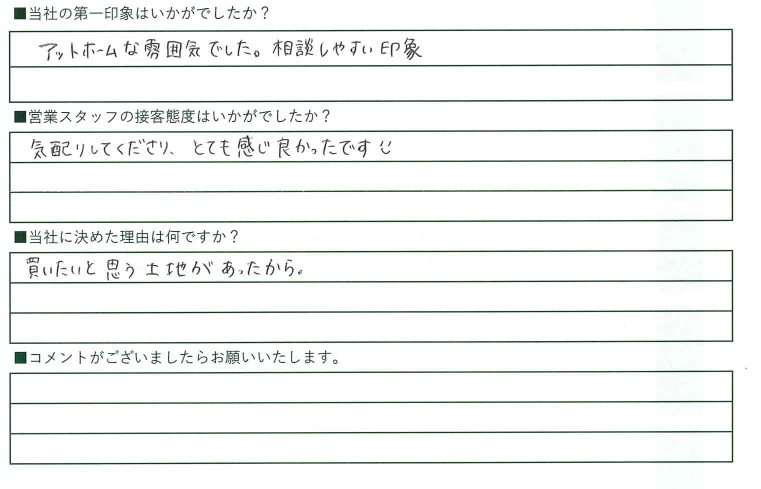 ■当社の第一印象はいかがでしたか？
アットホームな雰囲気でした。相談しやすい印象
■営業スタッフの接客態度はいかがでしたか？
気配りしてくださり、とても感じ良かったです
■当社に決めた理由は何ですか？
買いたいと思う土地があったから。
■コメントがございましたらお願いいたします。